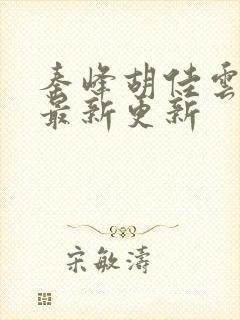 秦峰胡佳雲
最新更新
宋敏濤